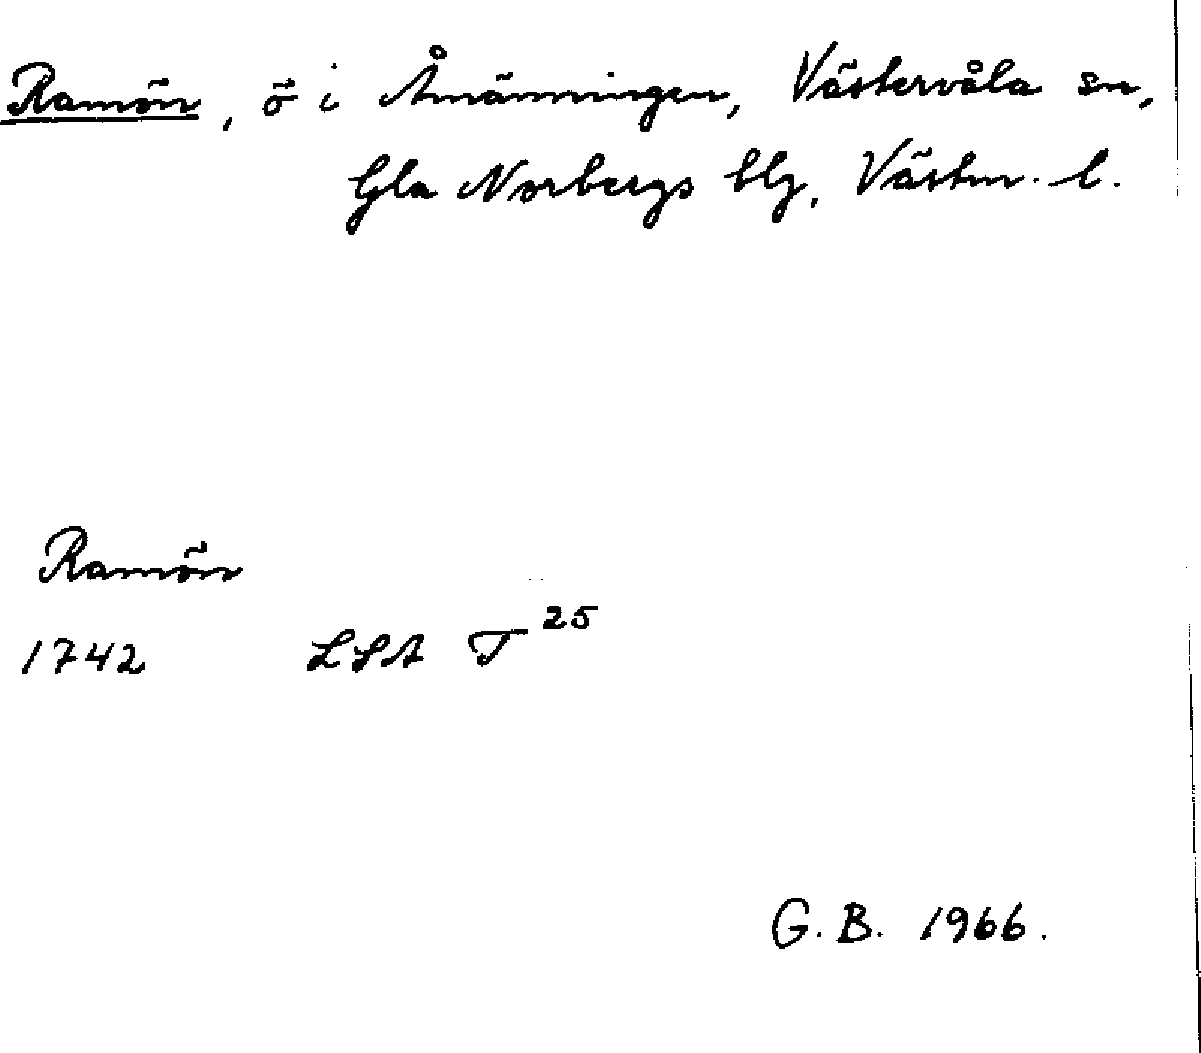 Ramön, ö i Åmänningen, Västervåla sn,
Gla Norbergs blg, Västm. l.
Ramön
1742 LSA T 25
G. B. 1966.